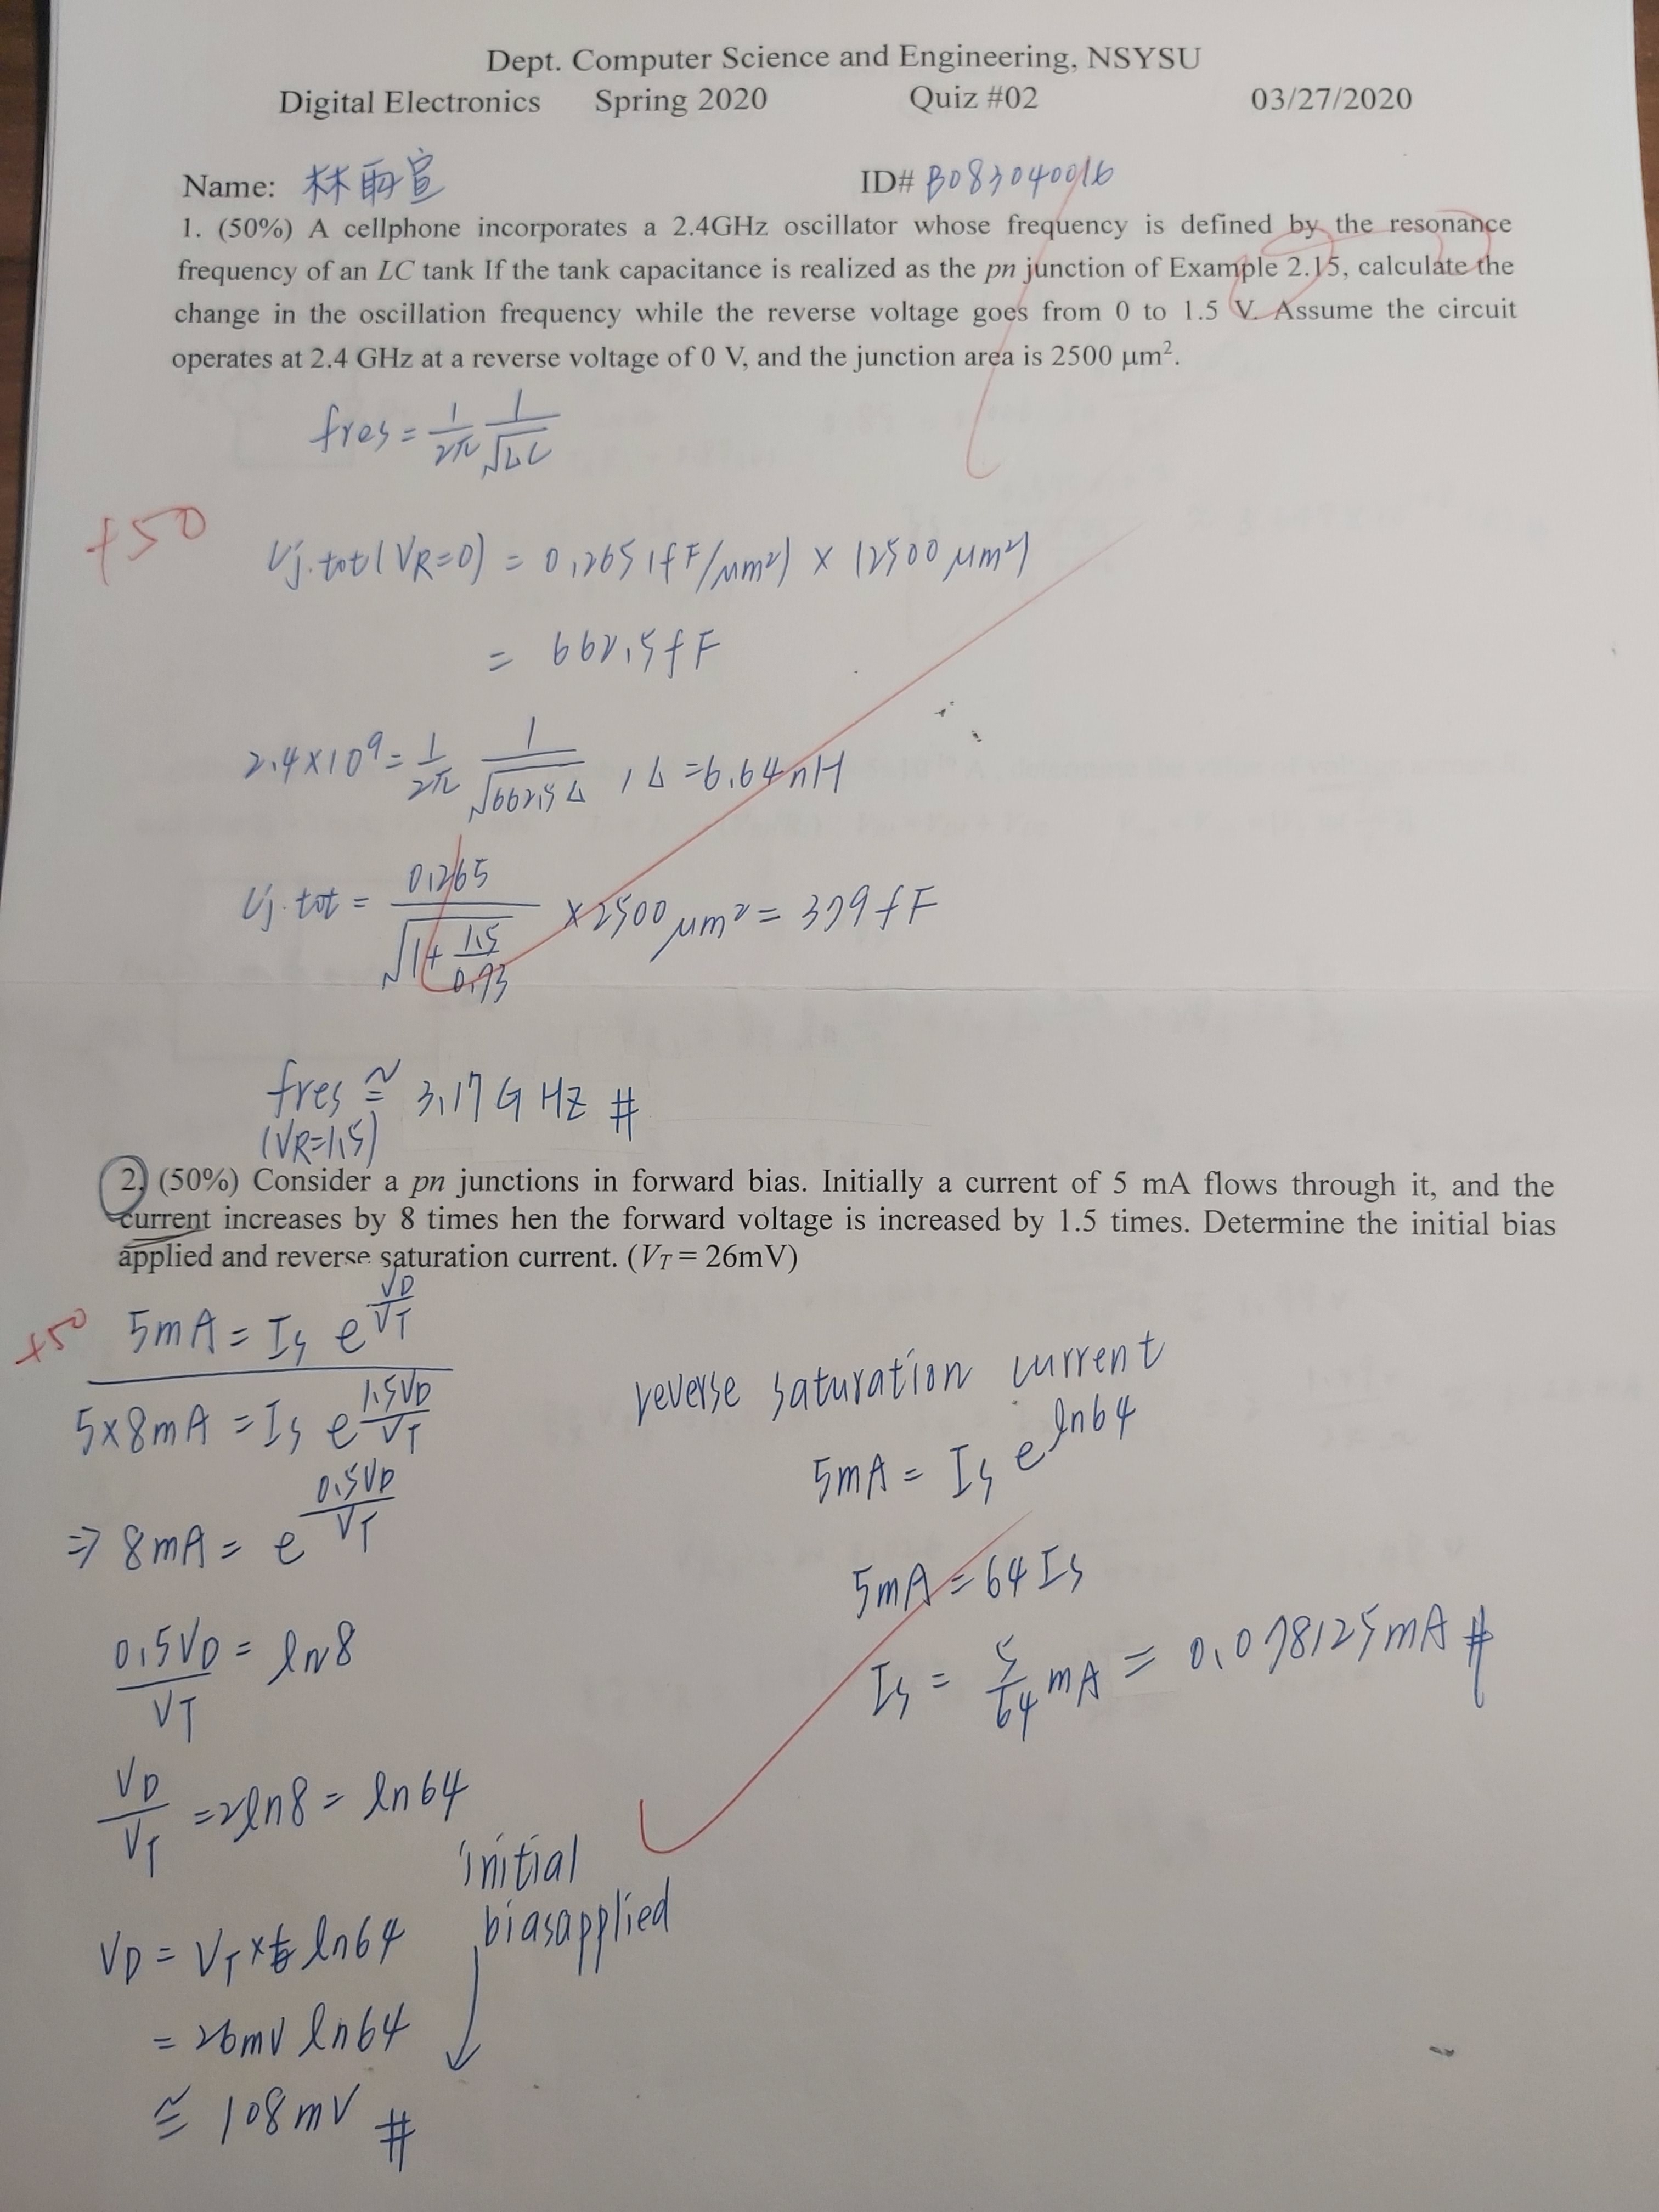 Dept. Computer Science and Engineering, NSYSU
Digital Electronics Spring 2020 Quiz #02 03/27/2020
Name: 林雨宣 ID# B083040016
1. (50%) A cellphone incorporates a 2.4GHz oscillator whose frequency is defined by the resonance
frequency of an LC tank If the tank capacitance is realized as the pn junction of Example 2.15, calculate the
change in the oscillation frequency while the reverse voltage goes from 0 to 1.5 V. Assume the circuit
operates at 2.4 GHz at a reverse voltage of 0 V, and the junction area is 2500 μm².
fres = 1/2π 1/√LC
+50
Cj.tot (VR=0) = 0.265 (fF/μm²) × (2500 μm²)
= 662.5fF
2.4×10⁹ = 1/2π 1/√662.5L , L = 6.64nH
Cj.tot = 0.265/√(1+1.5/0.73) × 2500 μm² = 379fF
fres ≅ 3.17GHZ #
(VR=1.5)
2. (50%) Consider a pn junctions in forward bias. Initially a current of 5 mA flows through it, and the
current increases by 8 times hen the forward voltage is increased by 1.5 times. Determine the initial bias
applied and reverse saturation current. (VT = 26mV)
+50
5mA = Is e^(VD/VT)
5×8mA = Is e^(1.5VD/VT)
⇒ 8mA = e^(0.5VD/VT)
0.5VD/VT = ln8
VD/VT = 2ln8 = ln64
initial
bias applied
VD = VT × ln64
= 26mV ln64
≅ 108mV #
reverse saturation current
5mA = Is e^ln64
5mA = 64Is
Is = 5/64 mA = 0.078125mA #